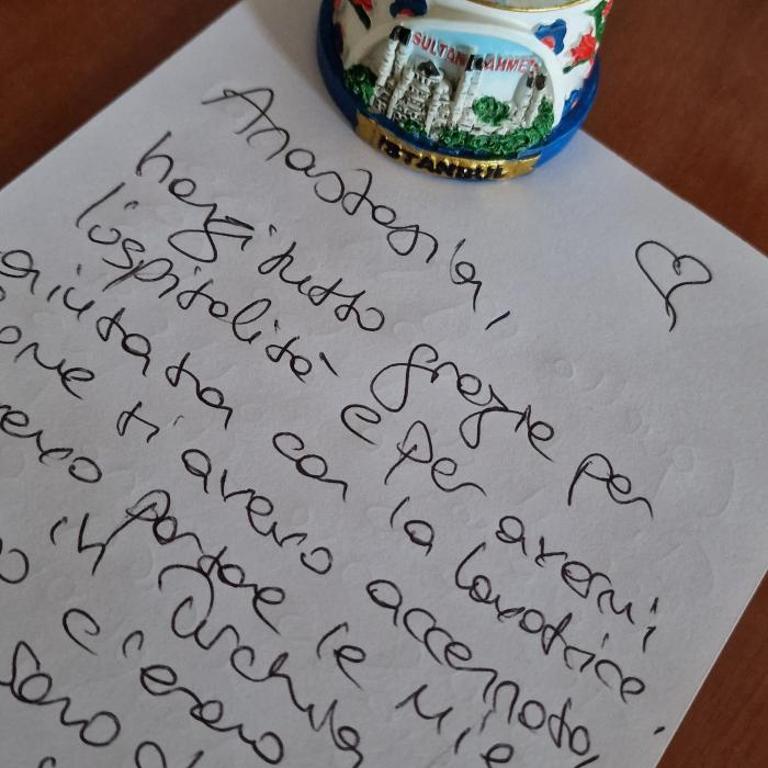 SULTAN AHMET
ISTANBUL
Anastasia,
hazitutto grazie per
l'ospitalità e per avermi
aiutata con la lavatrice.
ti avevo accennato,
portae le mie
in Turchia
c'erano
sono